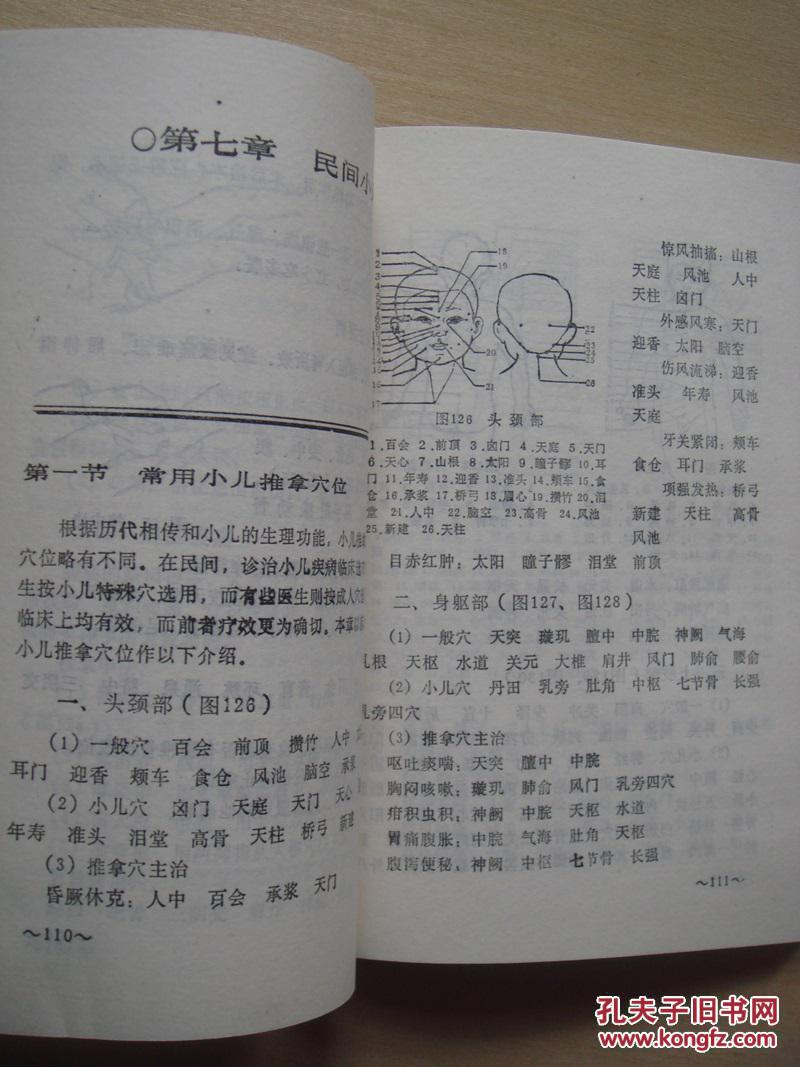 ○第七章 民间小
第一节 常用小儿推拿穴位
根据历代相传和小儿的生理功能，小儿推
穴位略有不同。在民间，诊治小儿疾病临床
生按小儿特殊穴选用，而有些医生则按成人穴
临床上均有效，而前者疗效更为确切。本章以
小儿推拿穴位作以下介绍。
一、头颈部（图126）
（1）一般穴 百会 前顶 攒竹 人中
耳门 迎香 颊车 食仓 风池 脑空 承浆
（2）小儿穴 囟门 天庭 天门 天心
年寿 准头 泪堂 高骨 天柱 桥弓 新建
（3）推拿穴主治
昏厥休克：人中 百会 承浆 天门
～110～
1
2
3
4
5
6
7
8
9
10
11
12
13
14
15
16
17
18
19
20
21
22
23
24
25
26
图126 头颈部
1.百会 2.前顶 3.囟门 4.天庭 5.天门
6.天心 7.山根 8.太阳 9.瞳子髎 10.耳
门 11.年寿 12.迎香 13.准头 14.颊车 15.食
仓 16.承浆 17.桥弓 18.眉心 19.攒竹 20.泪
堂 21.人中 22.脑空 23.高骨 24.风池
25.新建 26.天柱
惊风抽搐：山根
天庭 风池 人中
天柱 囟门
外感风寒：天门
迎香 太阳 脑空
伤风流涕：迎香
准头 年寿 风池
天庭
牙关紧闭：颊车
食仓 耳门 承浆
项强发热：桥弓
新建 天柱 高骨
风池
目赤红肿：太阳 瞳子髎 泪堂 前顶
二、身躯部（图127、图128）
（1）一般穴 天突 璇玑 膻中 中脘 神阙 气海
乳根 天枢 水道 关元 大椎 肩井 风门 肺俞 腰俞
（2）小儿穴 丹田 乳旁 肚角 中枢 七节骨 长强
乳旁四穴
（3）推拿穴主治
呕吐痰喘：天突 膻中 中脘
胸闷咳嗽：璇玑 肺俞 风门 乳旁四穴
疳积虫积：神阙 中脘 天枢 水道
胃痛腹胀：中脘 气海 肚角 天枢
腹泻便秘：神阙 中枢 七节骨 长强
～111～
孔夫子旧书网
www.kongfz.com